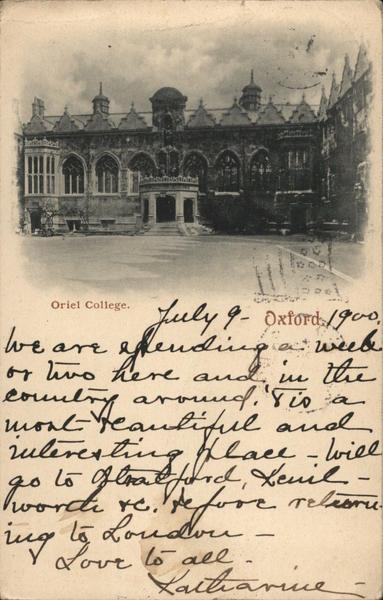 Oriel College.
Oxford.
July 9 - 1900
We are spending a week
or two here and in the
country around, 'tis a
most beautiful and
interesting place - Will
go to Stratford, Kenil-
worth &c. before return-
ing to London -
Love to all -
Katharine -